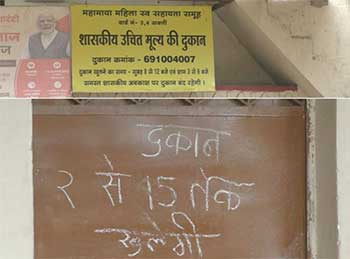 महामाया महिला स्व सहायता समूह
वार्ड नं- 3,4
शासकीय उचित मूल्य की दुकान
दुकान क्रमांक - 691004007
दुकान खुलने का समय - सुबह 8 से 12 बजे एवं शाम 3 से 6 बजे
समस्त शासकीय अवकाश पर दुकान बंद रहेगी ।
दुकान
२ से 15 तक
खुलेगी